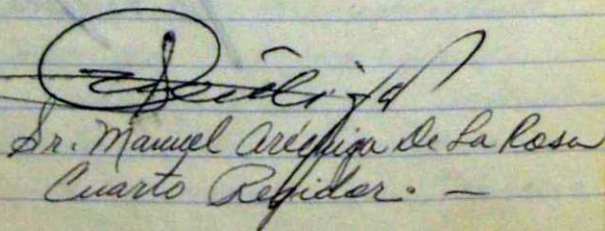 Sr. Manuel Aréchiga De La Rosa
Cuarto Regidor. —